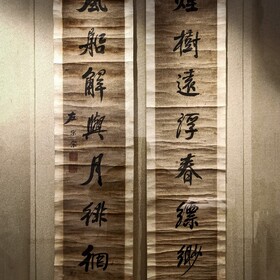 煙樹遠浮春縹緲
風船解與月徘徊